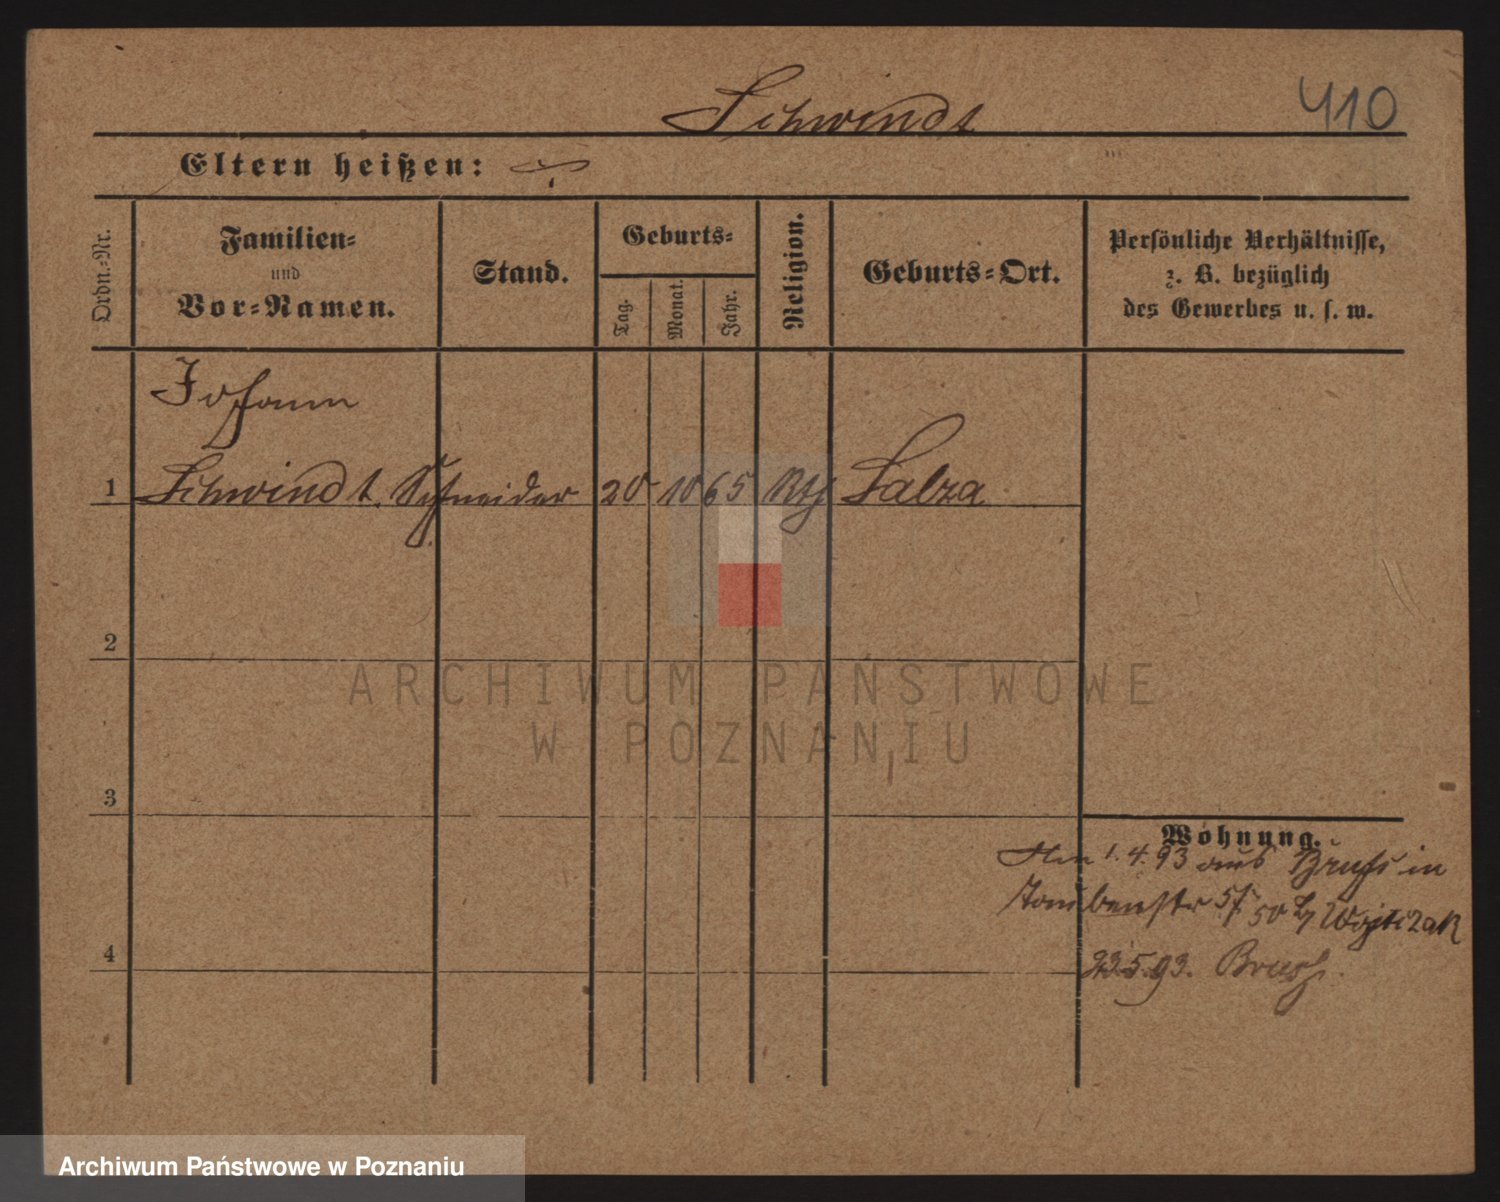 Schwindt
410
Eltern heißen:
Ordn.-Nr.
Familien-
und
Vor-Namen.
Stand.
Geburts-
Tag.
Monat.
Jahr.
Religion.
Geburts-Ort.
Persönliche Verhältnisse,
z. B. bezüglich
des Gewerbes u. s. w.
Johann
1 Schwindt. Schneider 20 10 65 Kth Salza
2
3
4
Wohnung.
1.4.93 aus in
Taubenstr 50 Wojtczak
23.5.93.
ARCHIWUM PAŃSTWOWE
W POZNANIU
Archiwum Państwowe w Poznaniu